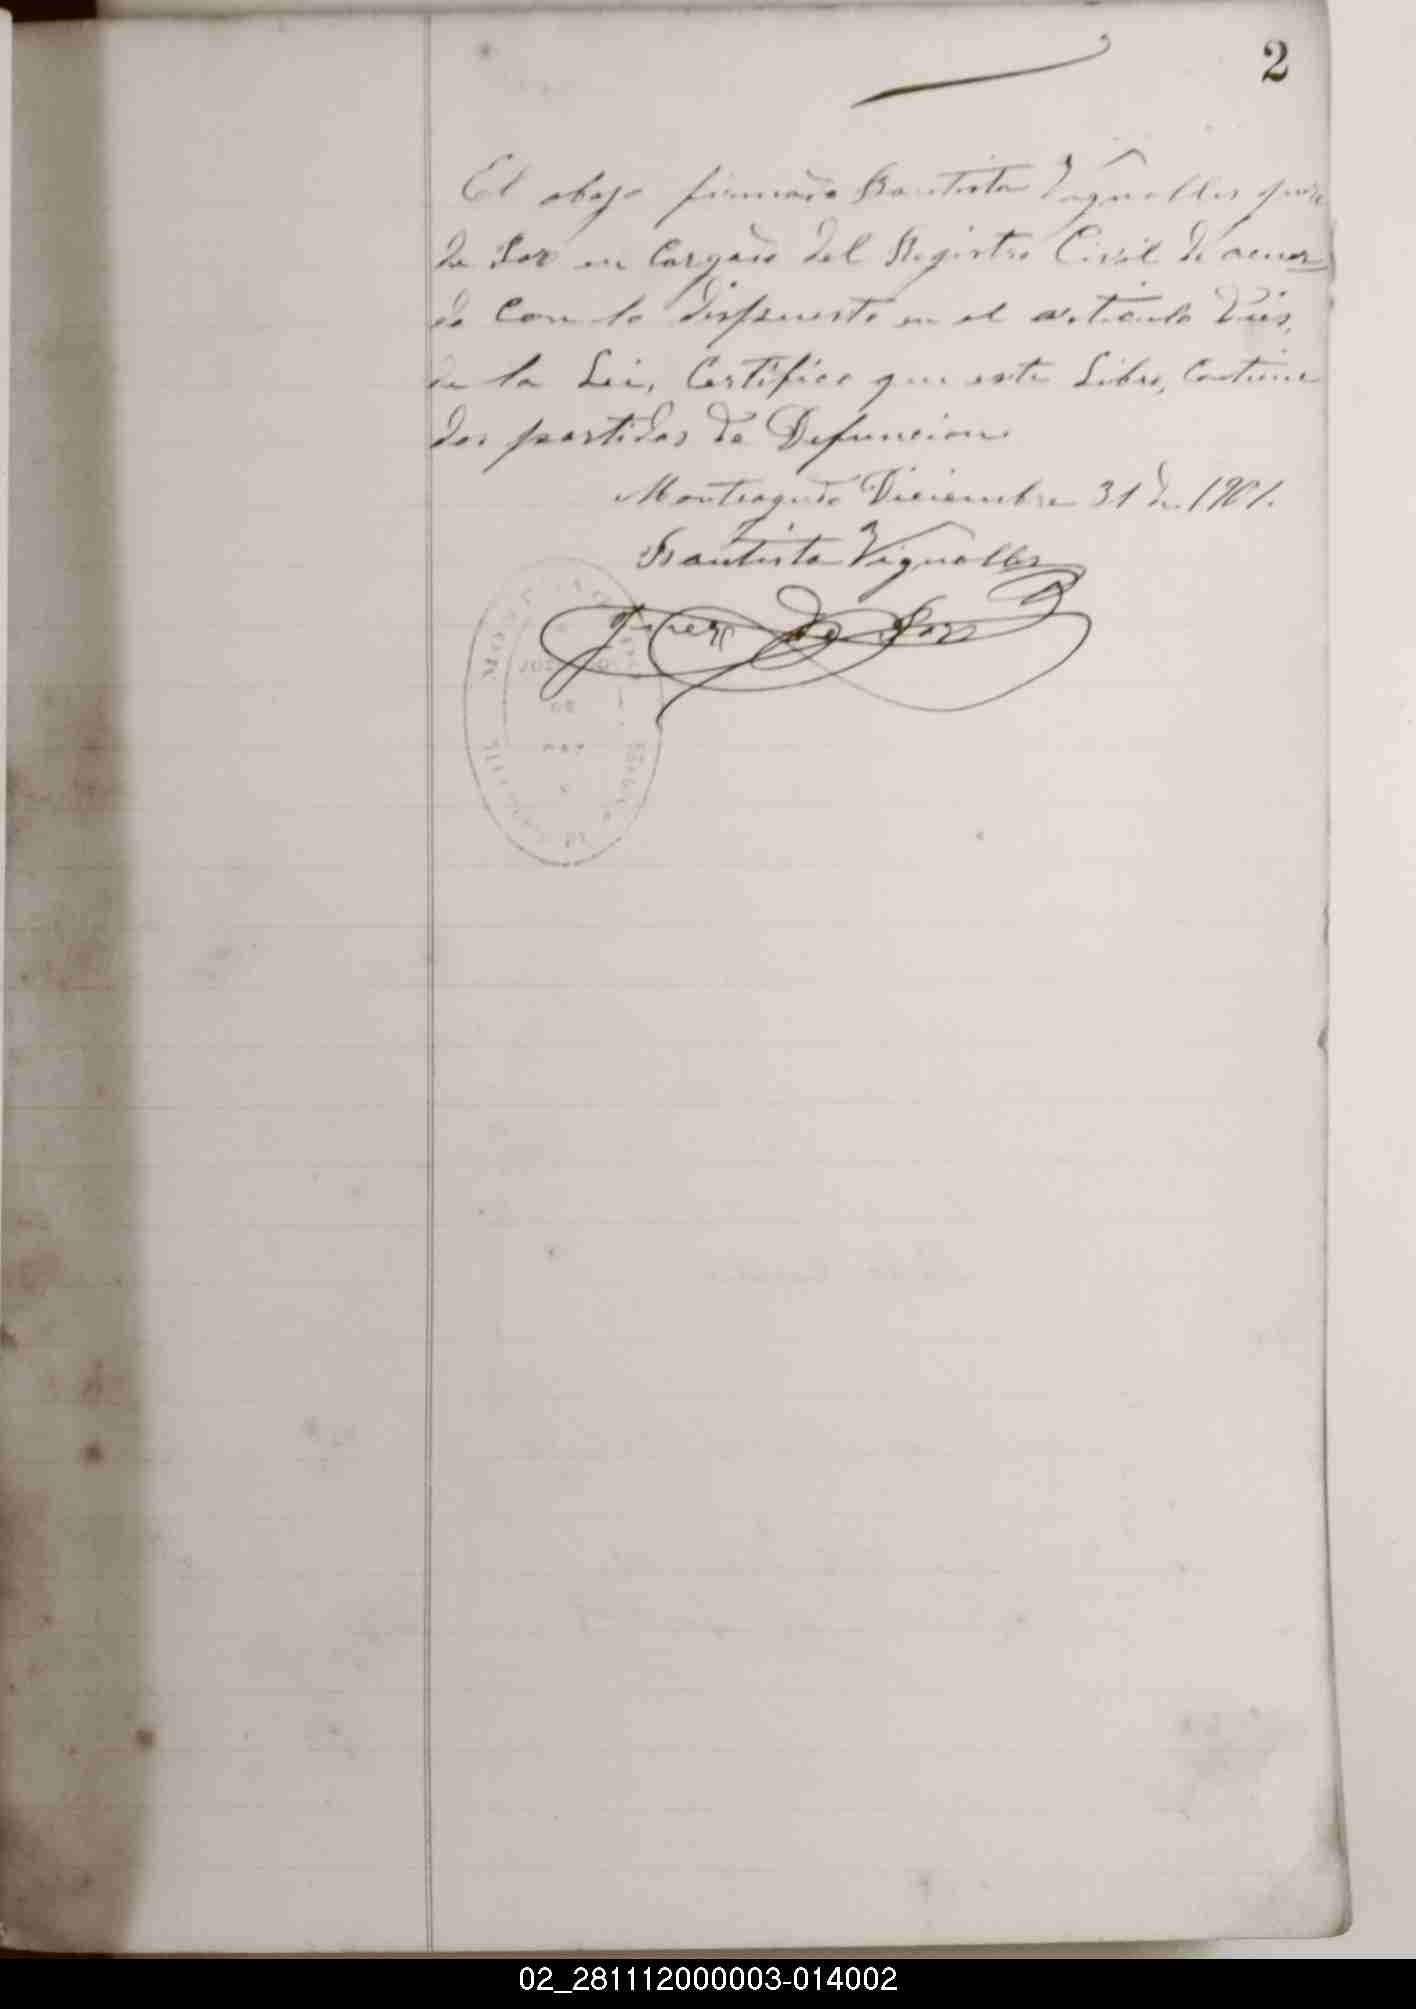 2
El abajo firmado Bautista Vignolles Juez
de Paz en Cargado del Registro Civil de acuer
do Con lo dispuesto en el articulo Dies,
de la Lei, Certifico que este Libro, Contiene
dos partidas de Defuncion.
Monteagudo Diciembre 31 de 1901.
Bautista Vignolles
Juez de Paz
02_281112000003-014002